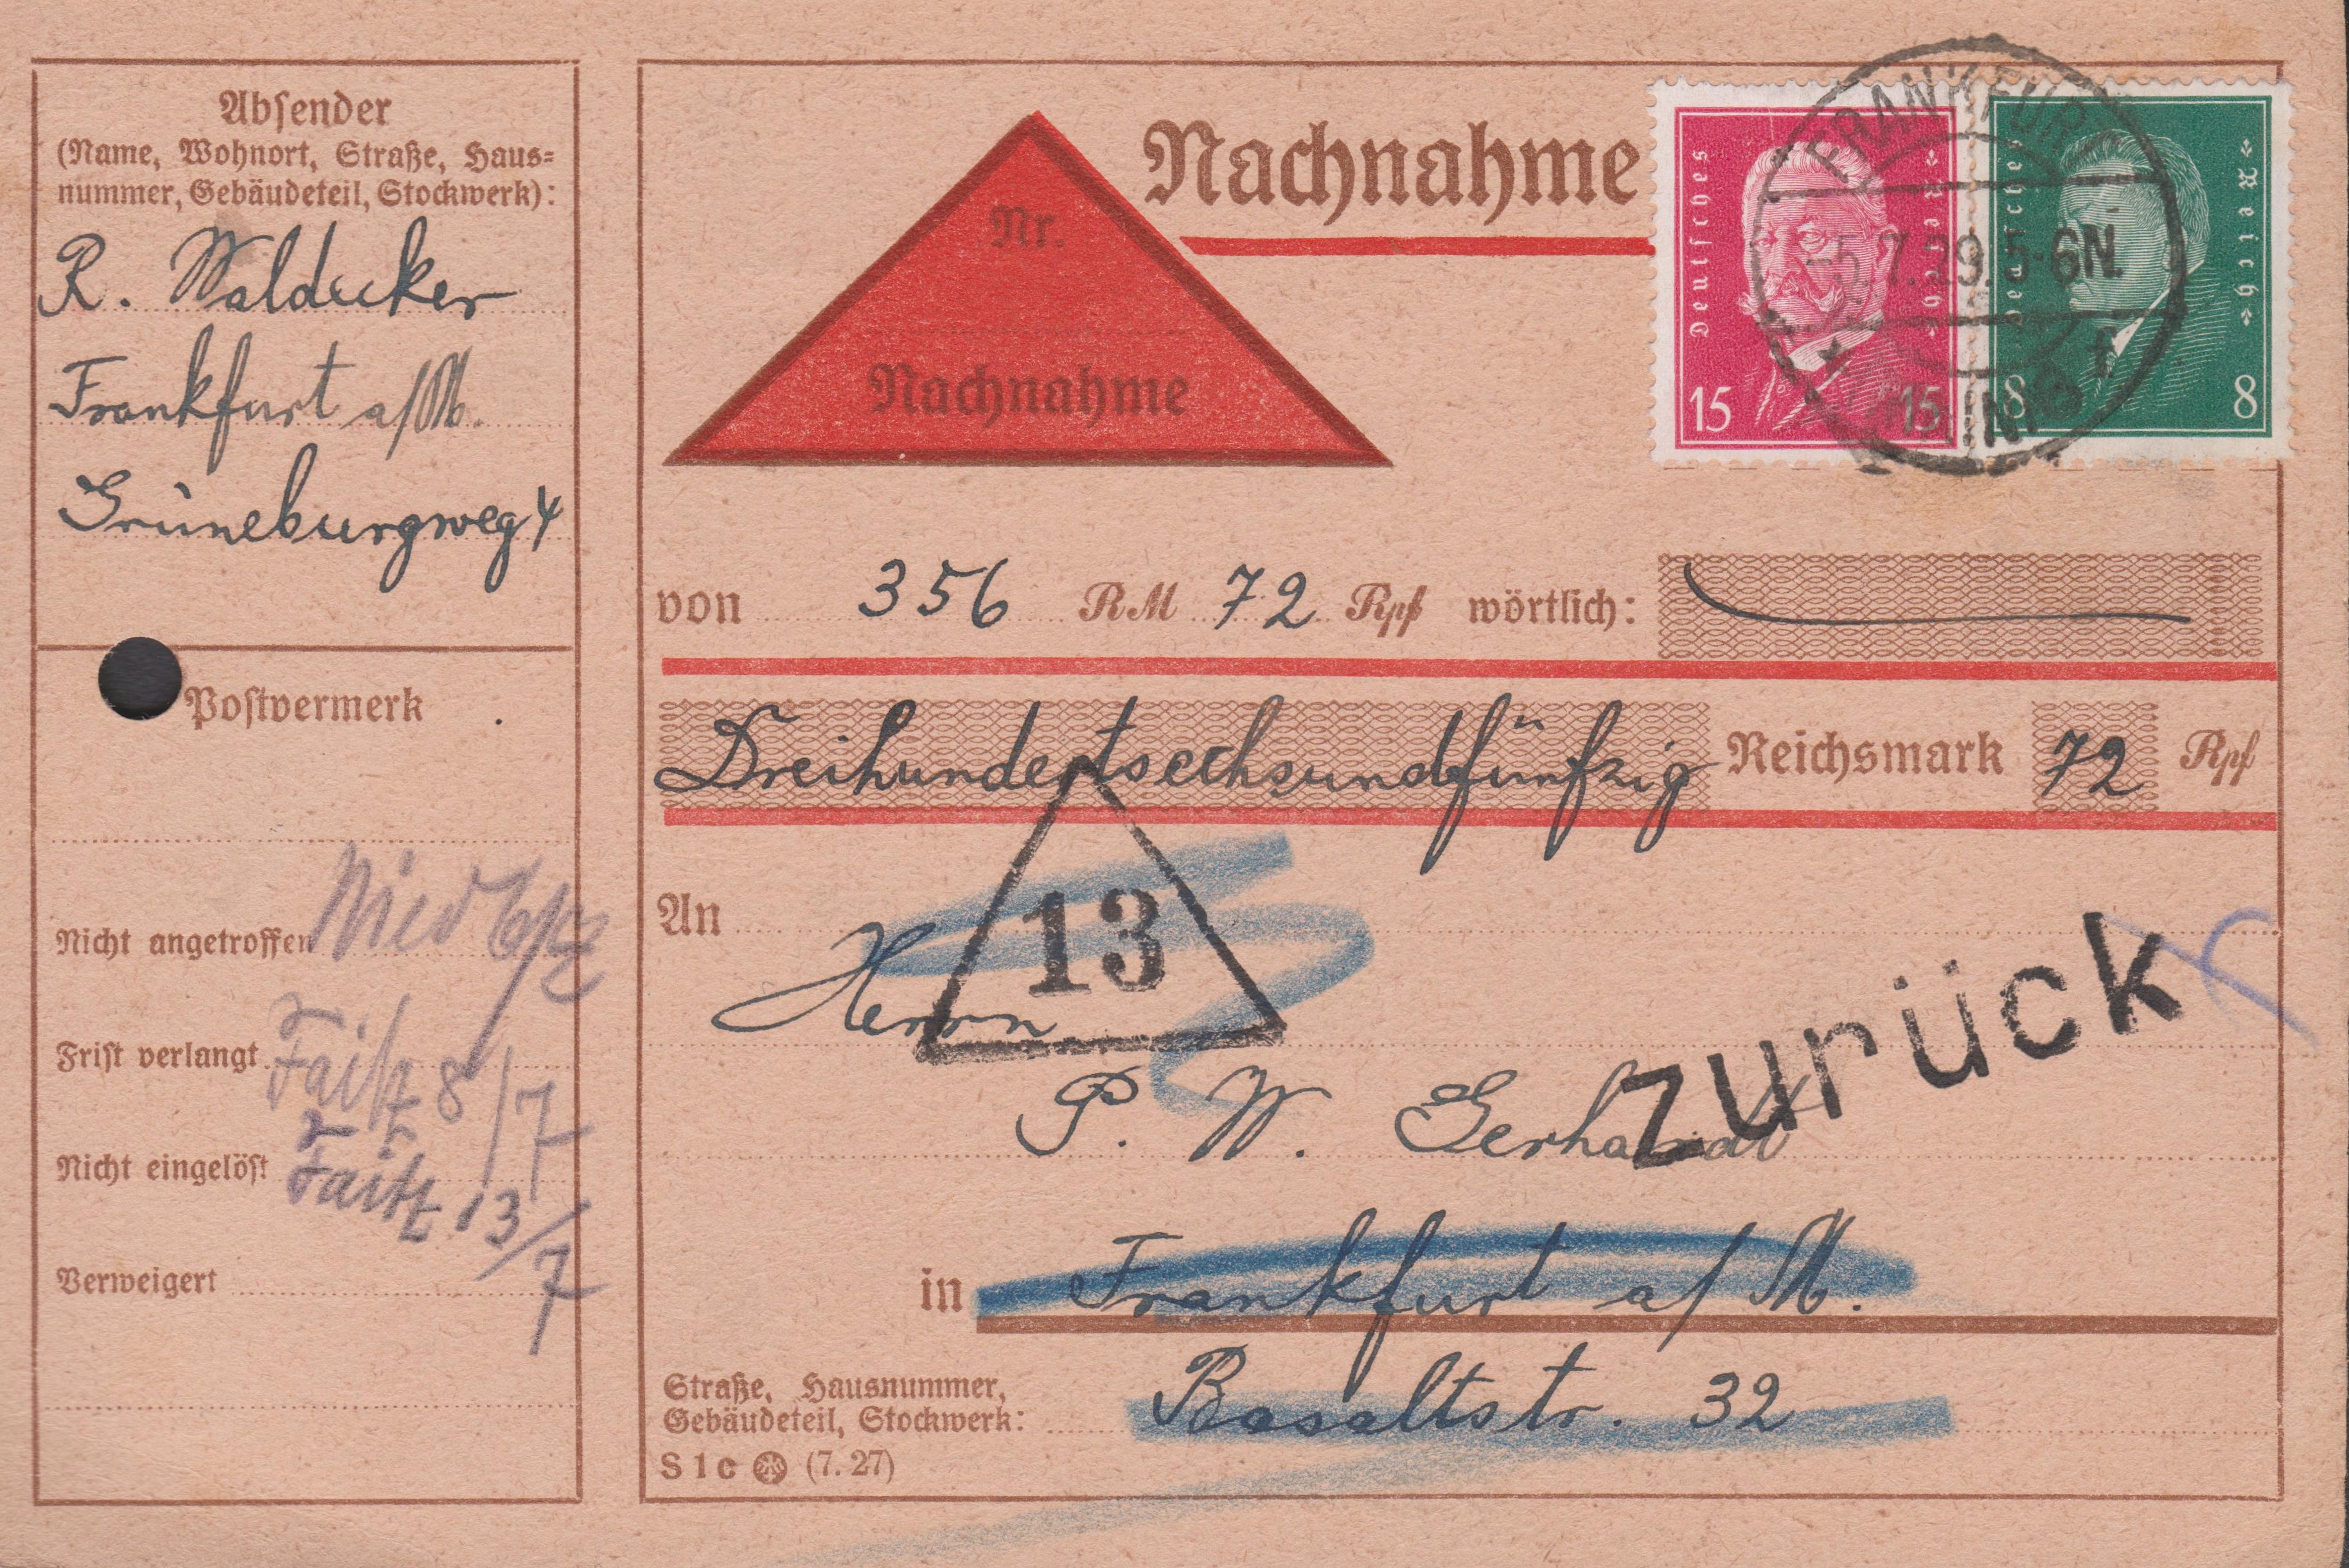 Absender
(Name, Wohnort, Straße, Haus-
nummer, Gebäudeteil, Stockwerk):
R. Waldecker
Frankfurt a/M.
Grüneburgweg 4
Postvermerk
Nicht angetroffen
Frist verlangt 8/7
Nicht eingelöst 13/7
Verweigert
Nr.
Nachnahme
Nachnahme
Deutsches Reich
15 15
Deutsches Reich
8 8
FRANKFURT
-5.7.29.5-6N.
(MAIN)
von 356 RM 72 Rpf wörtlich:
Dreihundertsechsundfünfzig Reichsmark 72 Rpf
13
An
Herrn
P. W. Gerhardt
zurück
in Frankfurt a/M.
Straße, Hausnummer,
Gebäudeteil, Stockwerk: Basaltstr. 32
S 1 c (7. 27)